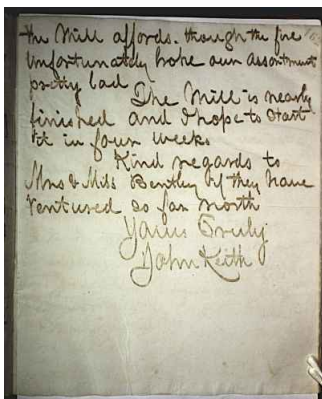 the Mill affords. though the fire
unfortunately broke our assortment
pretty bad
The Mill is nearly
finished and I hope to start
it in four weeks
Kind regards to
Mrs & Miss Bentley if they have
ventured so far north
Yours Truly
John Keith